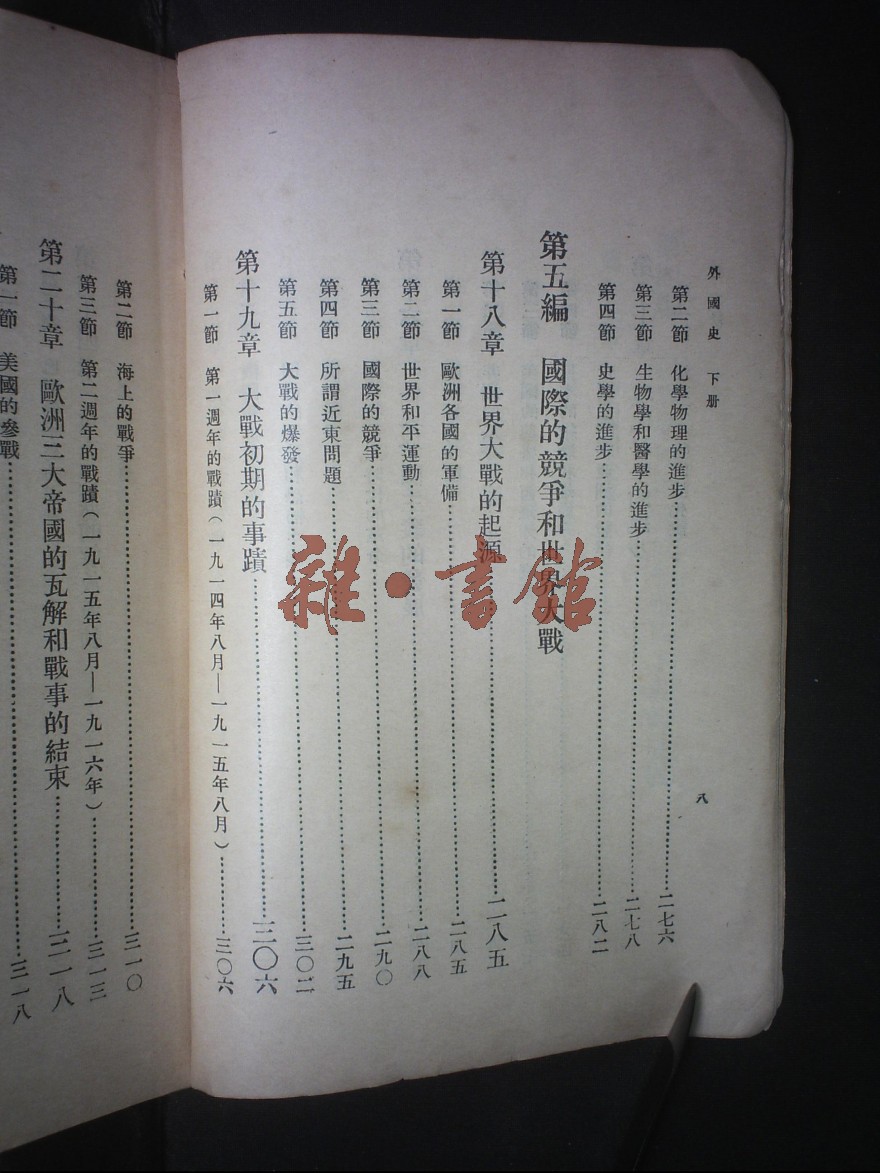 外國史 下册
第二節 化學物理的進步……二七六
第三節 生物學和醫學的進步……二七八
第四節 史學的進步……二八二
第五編 國際的競爭和世界大戰
第十八章 世界大戰的起源……二八五
第一節 歐洲各國的軍備……二八五
第二節 世界和平運動……二八八
第三節 國際的競爭……二九〇
第四節 所謂近東問題……二九五
第五節 大戰的爆發……三〇二
第十九章 大戰初期的事蹟……三〇六
第一節 第一週年的戰蹟(一九一四年八月—一九一五年八月)……三〇六
八
第二節 海上的戰爭……三一〇
第三節 第二週年的戰蹟(一九一五年八月—一九一六年)……三一三
第二十章 歐洲三大帝國的瓦解和戰事的結束……三一八
第一節 美國的參戰……三一八
雜·書館